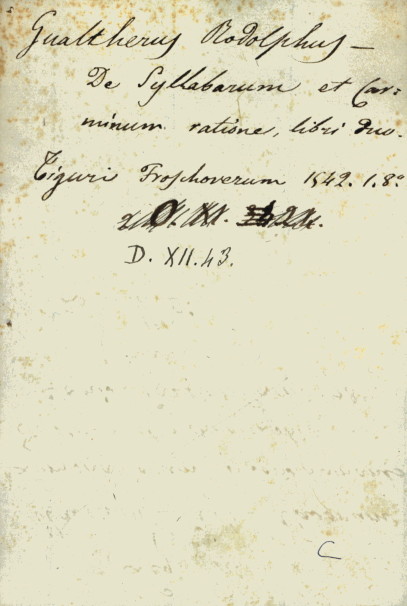 Gualtherus Rodolphus —
De Syllabarum et Car-
minum ratione, libri duo.
Tiguri Froschoverum 1542. 1. 8.°
D. XII. 43.
C